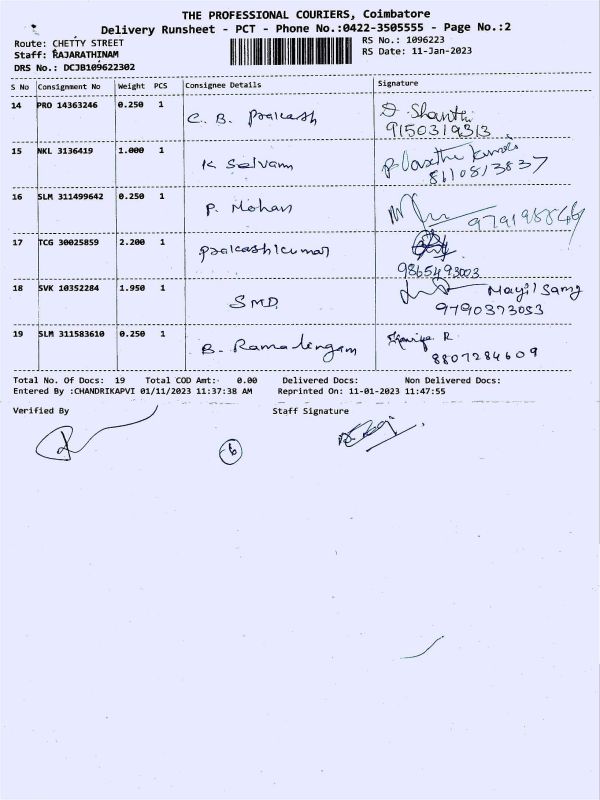 THE PROFESSIONAL COURIERS, Coimbatore
Delivery Runsheet - PCT - Phone No.:0422-3505555 - Page No.:2
Route: CHETTY STREET
RS No.: 1096223
Staff: RAJARATHINAM
RS Date: 11-Jan-2023
DRS No.: DCJB109622302
S No Consignment No Weight PCS Consignee Details Signature
14 PRO 14363246 0.250 1 C. B. Prakash D. Shanthi
9150319313
15 NKL 3136419 1.000 1 K Selvam
8110813837
16 SLM 311499642 0.250 1 P. Mohan
17 TCG 30025859 2.200 1 prakashkumar
9865493003
18 SVK 10352284 1.950 1 SMD
9790373053
19 SLM 311583610 0.250 1 B. Ramalingam
8807284609
Total No. Of Docs: 19 Total COD Amt:- 0.00 Delivered Docs: Non Delivered Docs:
Entered By :CHANDRIKAPVI 01/11/2023 11:37:38 AM Reprinted On: 11-01-2023 11:47:55
Verified By Staff Signature
6